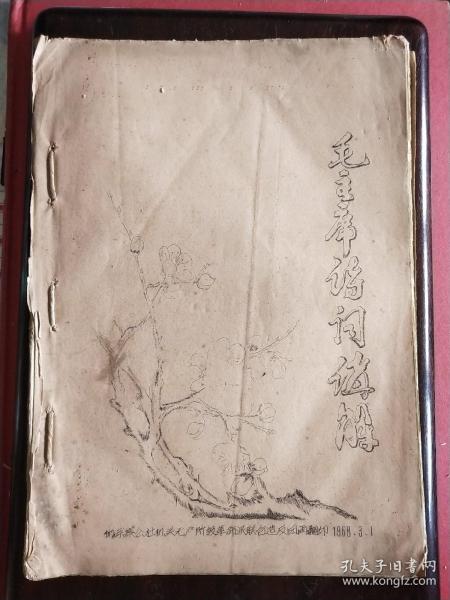 毛主席诗词讲解
公社机关无产阶级革命派联合造反团翻印 1968.3.1
孔夫子旧书网
www.kongfz.com